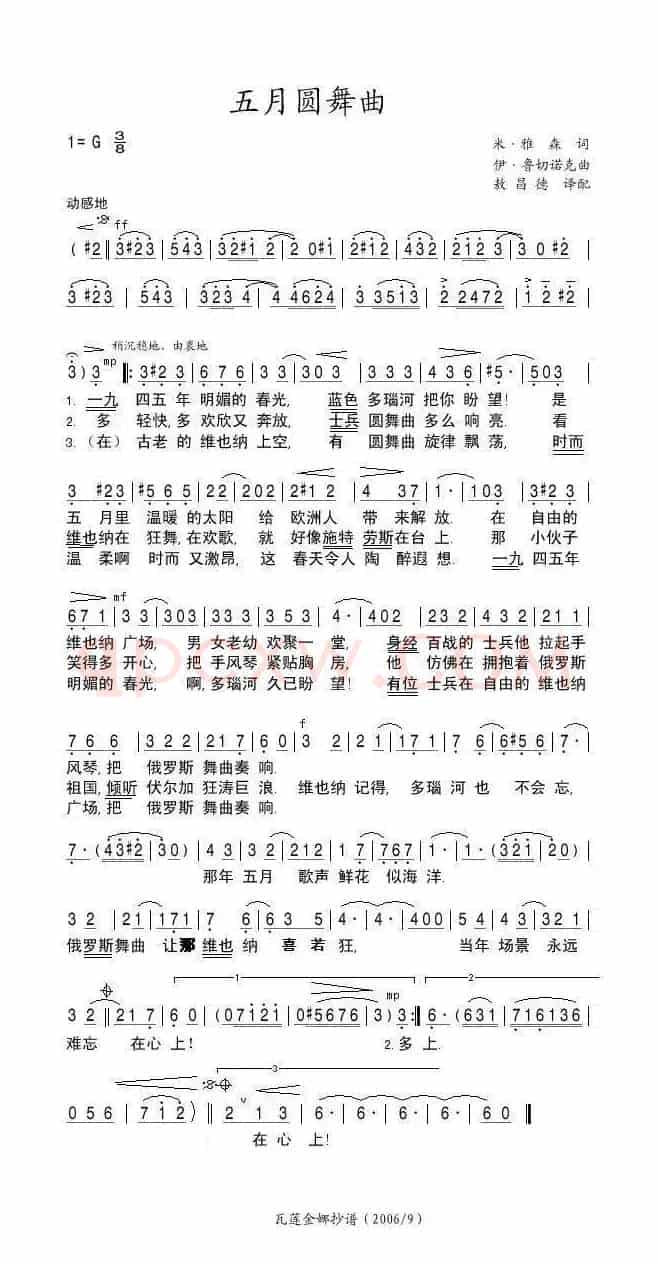 五月圆舞曲
1= G 3/8
米·雅 森 词
伊·鲁切诺克曲
敖 昌 德 译配
动感地
ff
( #2 | 3#23 | 543 | 32#1 2 | 2 0#1 | 2#12 | 432 | 212 3 | 3 0 #2 |
3 #23 | 543 | 323 4 | 4 4624 | 3 3513 | 2 2472 | 1 2 #2 |
稍沉稳地、由衷地
mp
3 ) 3 |: 3#2 3 | 6 7 6 | 3 3 | 3 0 3 | 3 3 3 | 4 3 2 | 3 #2 5 | 5 0 3 |
1. 一九 四五 年 明媚的 春光, 蓝色 多瑙河 把你 盼望! 是
2. 多 轻快,多 欢欣又 奔放, 士兵 圆舞曲 多么 响亮. 看
3. (在) 古老 的 维也纳 上空, 有 圆舞曲 旋律 飘荡, 时而
3 #23 | #56 5 | 22 | 202 | 2#12 | 4 37 | 1· | 103 | 3#23 |
五 月里 温暖 的太阳 给 欧洲人 带 来解 放. 在 自由的
维也纳在 狂舞, 在欢歌, 就 好像施特 劳斯在台 上. 那 小伙子
温 柔啊 时而 又激昂, 这 春天令人 陶 醉遐 想. 一九 四五年
mf
671 | 3 3 | 303 | 333 | 3 53 | 4· | 402 | 232 | 4 32 | 211 |
维也纳 广场, 男 女老幼 欢聚一 堂, 身经 百战的 士兵他 拉起手
笑得多 开心, 把 手风琴 紧贴胸 房, 他 仿佛在 拥抱着 俄罗斯
明媚的 春光, 啊,多瑙河 久已盼 望! 有位 士兵在 自由的 维也纳
f
7 6 6 | 3 2 2 | 217 | 6 0 | 3 2 | 2 1 | 1 7 1 | 1 7 | 6#56 | 7· |
风琴,把 俄罗斯 舞曲奏 响.
祖国,倾听 伏尔加 狂涛巨 浪. 维也纳 记得, 多瑙 河也 不会 忘,
广场,把 俄罗斯 舞曲奏 响.
7·(43#2 | 30) | 4 3 | 3 2 | 2 1 2 | 1 7 | 767 | 1· | 1·(321 | 20) |
那年 五月 歌声 鲜花 似海 洋.
3 2 | 21 | 171 | 7 6 | 6 3 5 | 4· | 4· | 400 | 5 4 | 4 3 | 4 3 |
俄罗斯舞曲 让那 维也纳 喜若 狂, 当年 场景 永远
1
2
mp
3 2 || 217 | 60 | (07121 | 0#5676 | 3 ) 3 :| 6·(631 | 716136 |
难忘 在心 上! 2.多 上.
3
056 | 712) || 2 13 | 6· | 6· | 6· | 6· | 60 ||
在 心 上!
瓦莲金娜抄谱(2006/9)